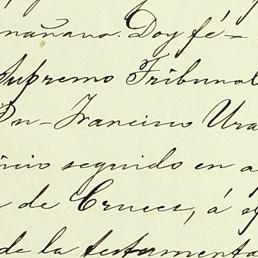 mañana. Doy fé-
Supremo Tribunal
Dn Francisco Ura
seguido en a
de Cruces, á
de la testamenta